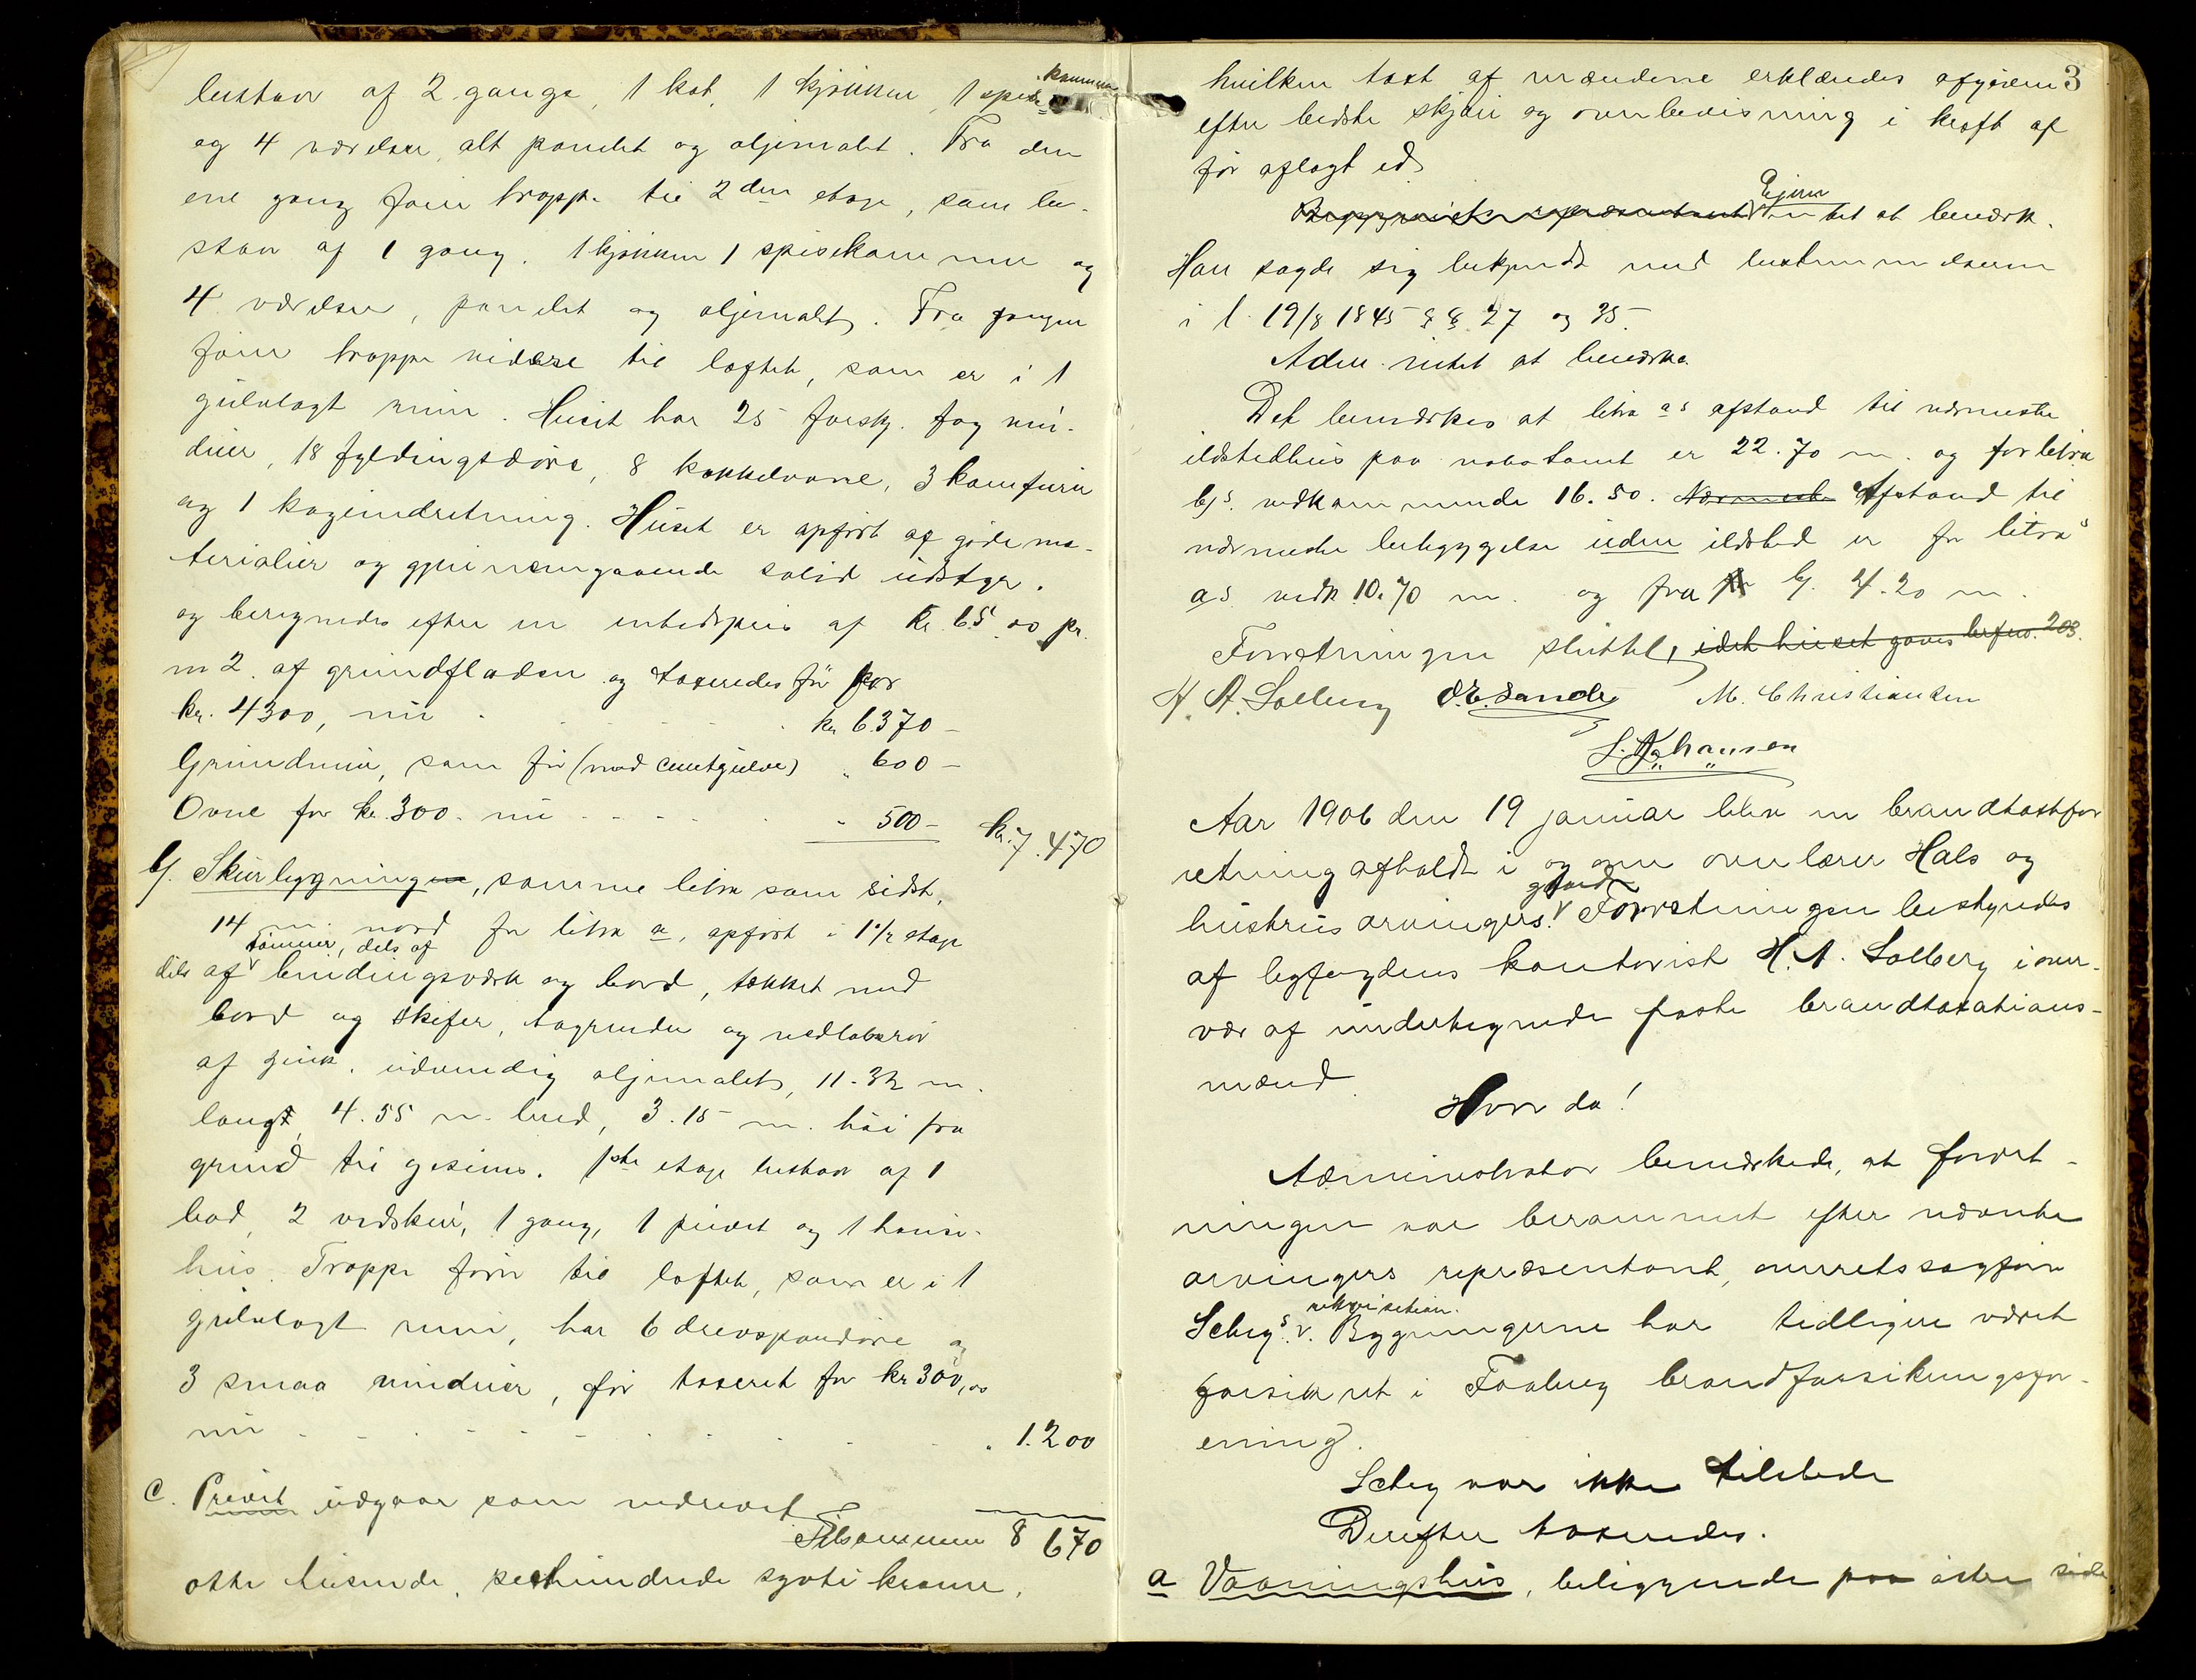 bestaar af 2 gange, 1 kot, 1 kjökken, 1 spise kammer
og 4 værelser, alt panelet og oljemalet. Fra den
ene gang förer trappe til 2den etage, som be-
staar af 1 gang. 1 kjökken 1 spisekammer og
4 værelser, panelet og oljemalet. Fra gangen
förer trappe videre til loftet, som er i 1
gulvlagt rum. Huset har 25 forskj. fag vin-
duer, 18 fyldingsdöre, 8 kakkelovne, 3 komfurer
og 1 kogeindretning. Huset er opfört af gode ma-
terialier og gjennemgaaende solid udstyr.
og beregnedes efter en enhedspris af kr. 65.00 pr.
m2. af grundfladen og taxeredes för for
kr. 4300, nu . . . . . kr 6370 —
Grundmur, som för (med cementgulve) " 600 —
Ovne for kr. 300. nu - - - - " 500 — kr. 7.470
b/. Skurbygningen, samme litra som sidst,
14 m. nord for litra a, opfört i 1 1/2 etage
dels af tömmer, dels af bindingsværk og bord, tækket med
bord og skifer, tagrender og nedlobsrör
af zink. udvendig oljemalet, 11.32 m.
langt, 4.55 m. bred, 3.15 m. höi fra
grund til gesims. 1ste etage bestaar af 1
bod, 2 vedskur, 1 gang, 1 privet og 1 hönse-
hus. Trappe förer til loftet, som er i 1
gulvlagt rum, har 6 drevspondöre og
3 smaa vinduer, för taxeret for kr 300,00
nu - - - - - - - - " 1.200
c. Privet udgaar som nedrevet
Tilsammen 8 670
otte tusinde, sexhundrede sytti kroner,
3
hvilken taxt af mændene erklæredes afgiven
efter bedste skjön og overbevisning i kraft af
för aflagt ed.
Eieren intet at bemærk.
Han sagde sig bekjendt med bestemmelserne
i l. 19/8 1845 §§ 27 og 35.
Adm. intet at bemærke.
Det bemærkes at litra as afstand til nærmeste
ildstedhus paa nabotomt er 22.70 m. og for litra
b/s. vedkommende 16.50. Nærmeste Afstand til
nærmeste bebyggelse uden ildsted er for litra
as vedk. 10.70 m. og fra for b/. 4.20 m.
Forretningen sluttet, idet huset gaves berfno. 203.
H. A. Solberg O.E. Sande M. Christiansen
S. Aahansen
Aar 1906 den 19 januar blev en brandtaxtfor
retning afholdt i og om overlærer Hals og
hustrus arvingers gaard. Forretningen bestyredes
af byfogdens kontorist H. A. Solberg i over-
vær af undertegnede faste brandtaxations-
mænd.
Hvor da!
Administrator bemærkede, at forret-
ningen var berammet efter nævnte
arvingers repræsentant, overretssagförer
Schrys rekvisition. Bygningerne har tidligere været
forsikret i Faaberg brandforsikringsfor-
ening.
Schry var ikke tilstede
Derefter taxeredes.
a Vaaningshus, beliggende paa östre side